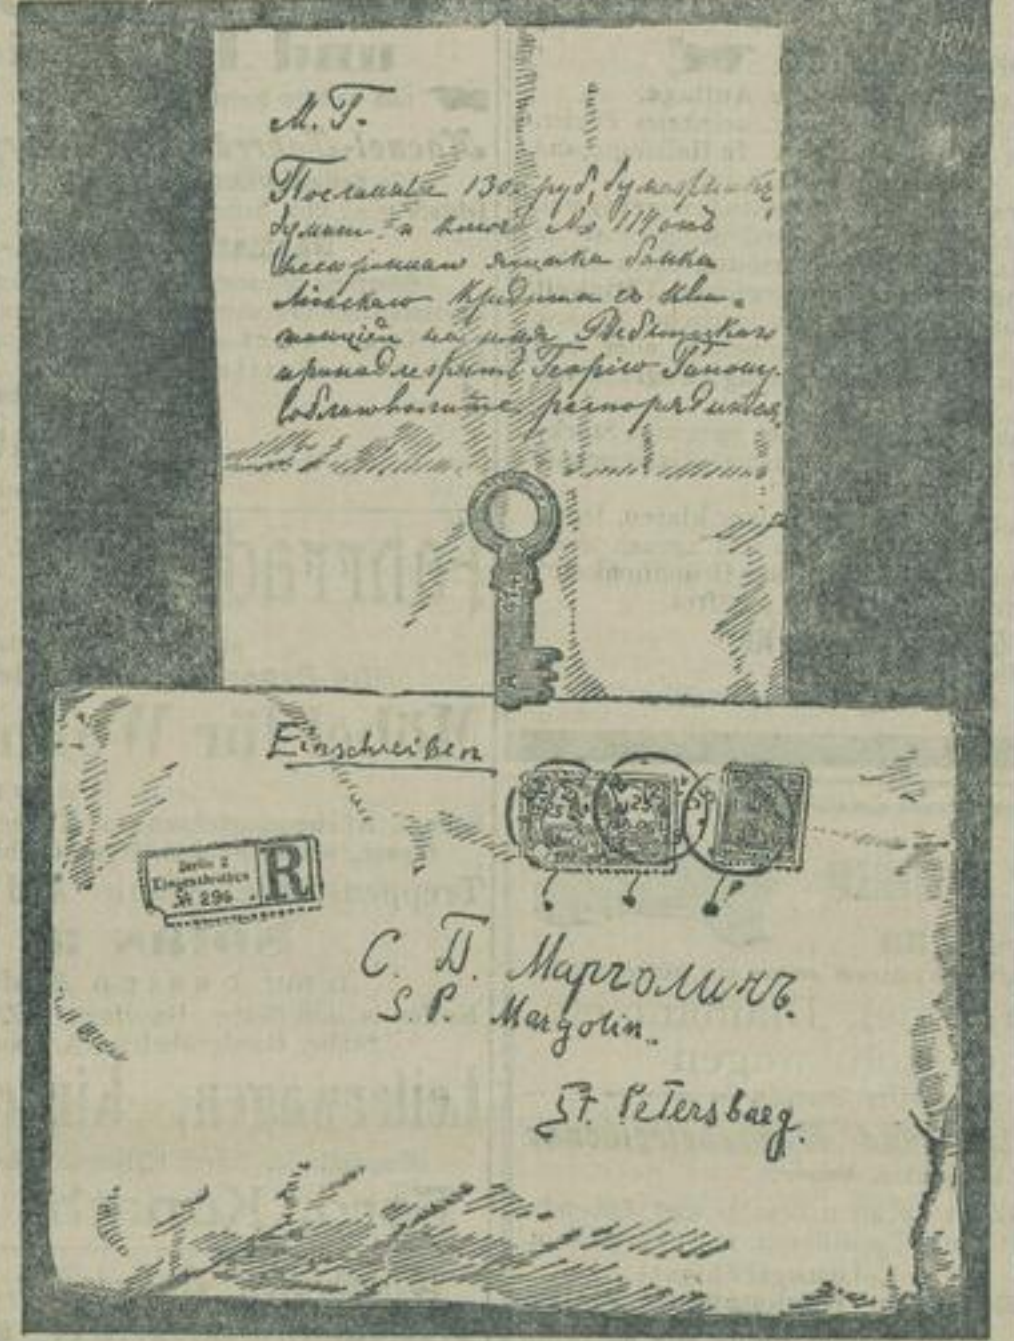 М. Г.
Посылаемые 1300 руб, бумажникъ
бумаги и ключъ № 114 отъ
несгораемаго ящика банка
Ліонскаго Кредита съ кви-
танціей на имя Рыбницкаго
принадлежатъ Георгію Гапону.
Соблаговолите распорядиться
Einschreiben
Berlin 2
Eingeschrieben
№ 296
R
25
С. П. Марголинъ.
S. P. Margolin.
St. Petersburg.